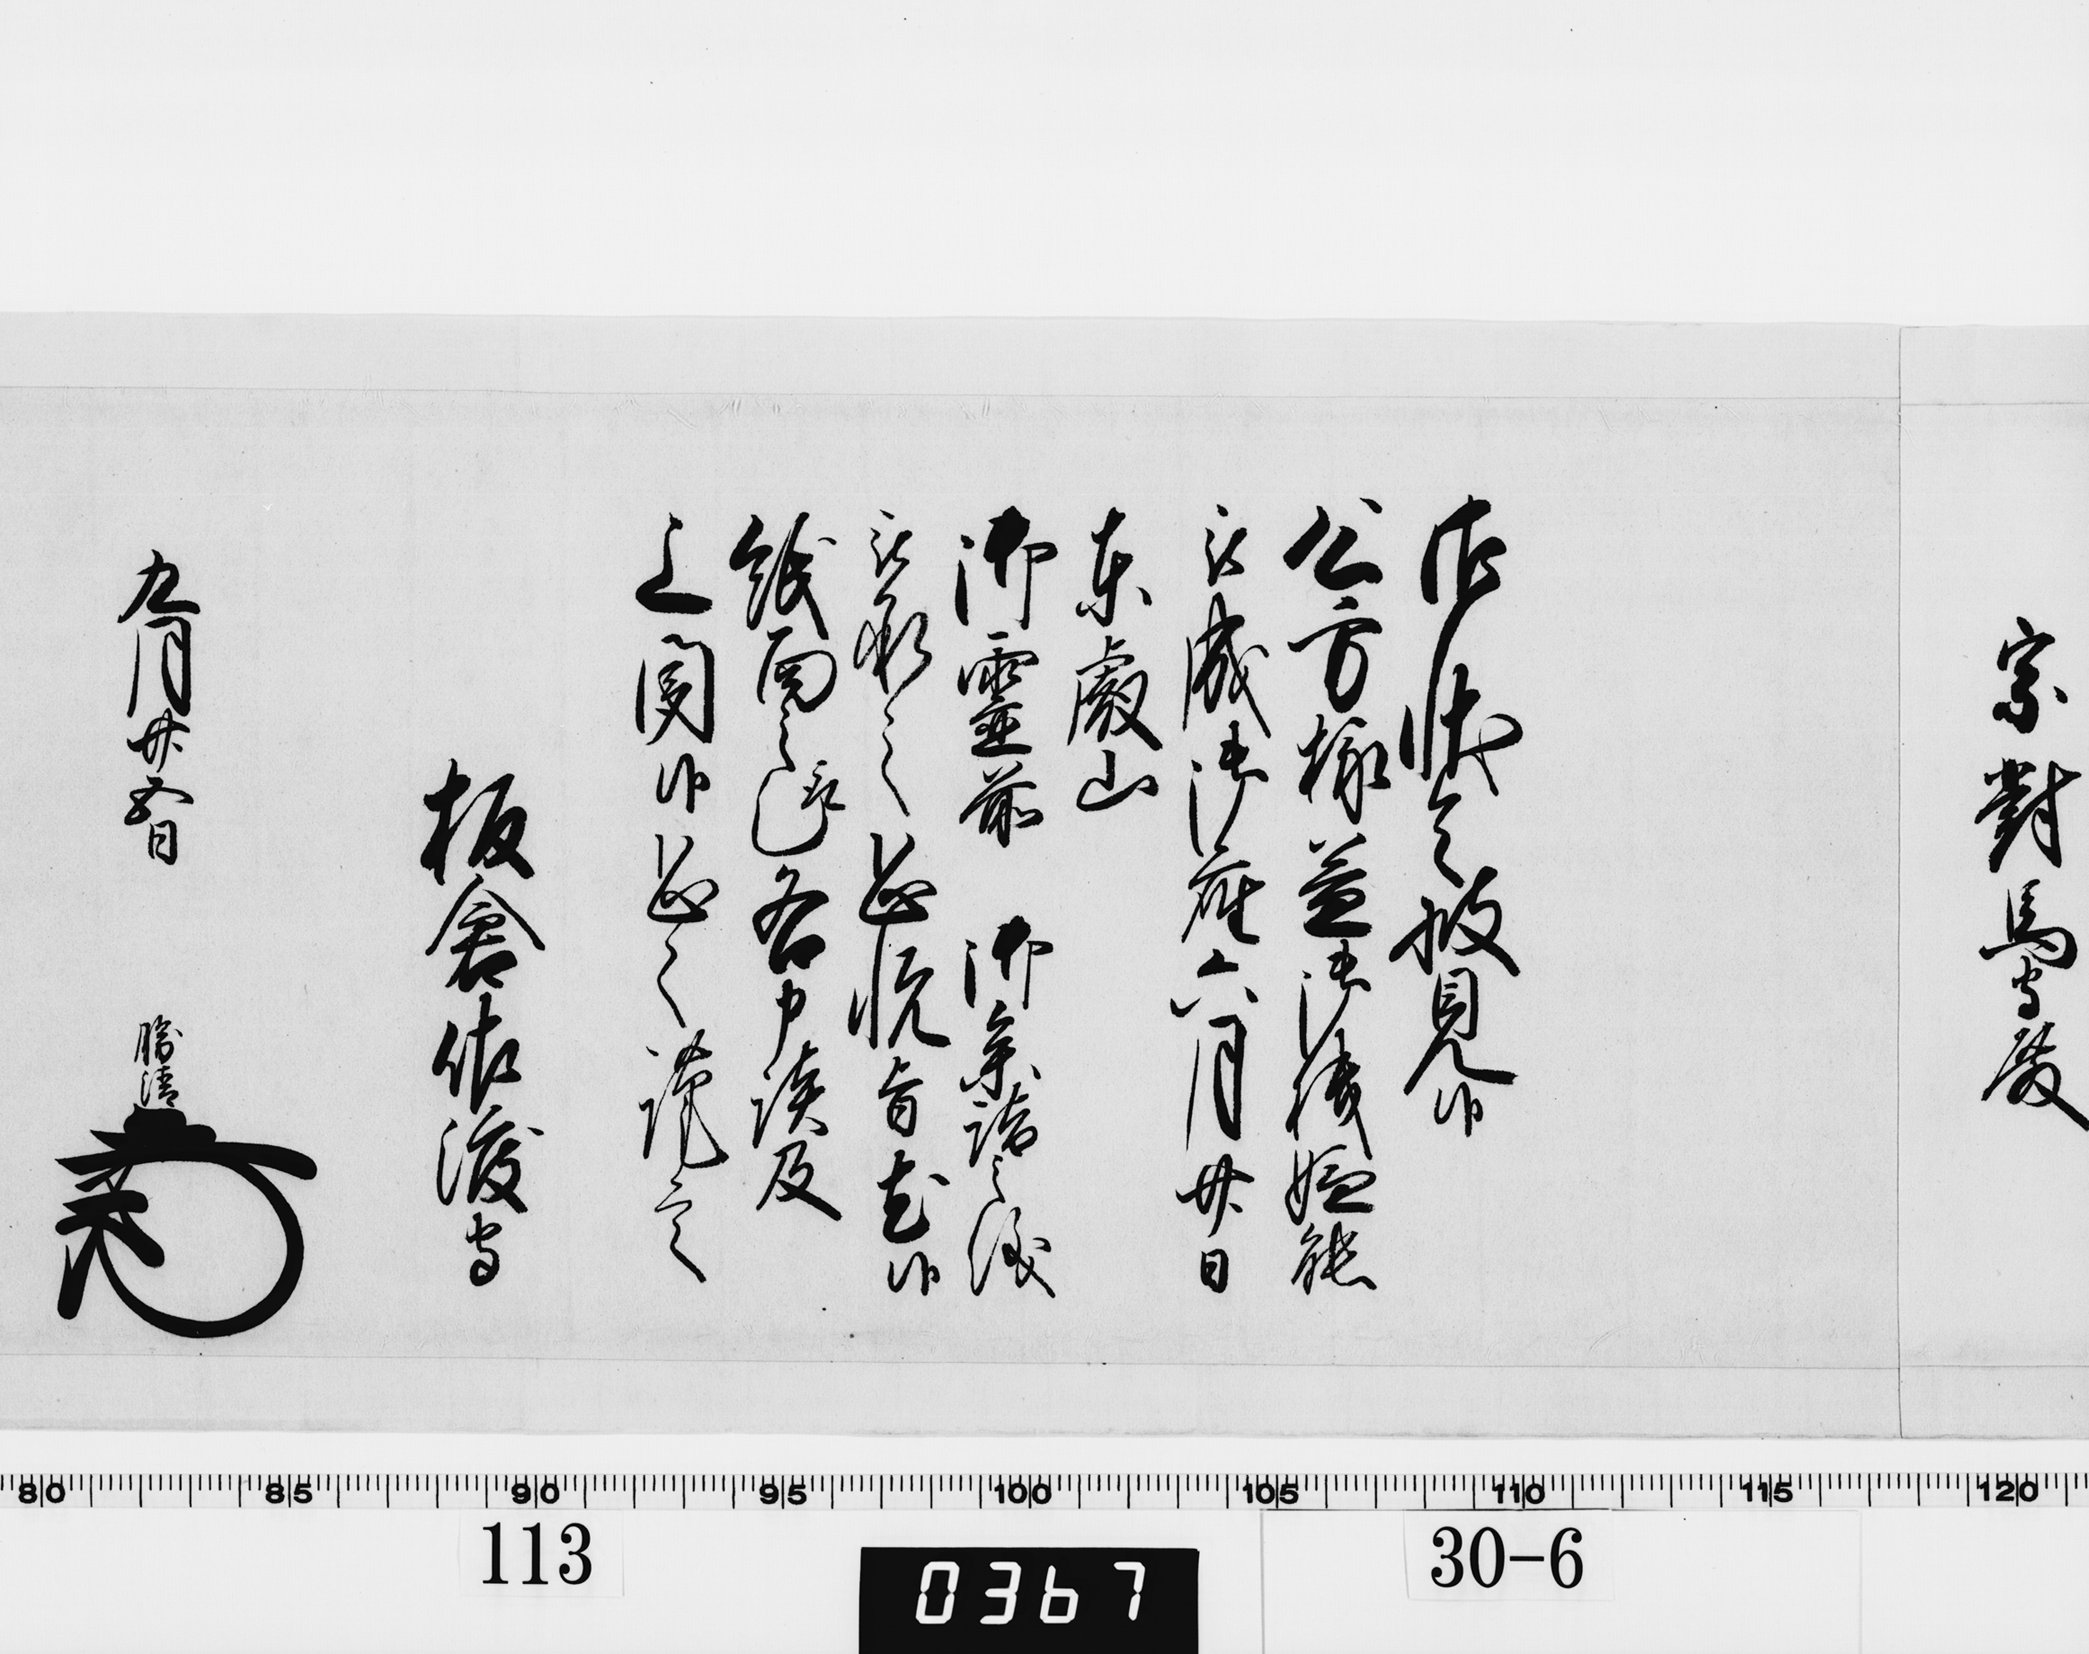 宗對馬守殿
御状令披見候
公方様益御機嫌能
被成御座六月廿日
東叡山
御靈前 御参詣之後
被承之恐悦旨尤候
紙面之趣各申談及
上聞候恐々謹言
板倉佐渡守
九月廿五日 勝清
80 85 90 95 100 105 110 115 120
113
0367
30-6